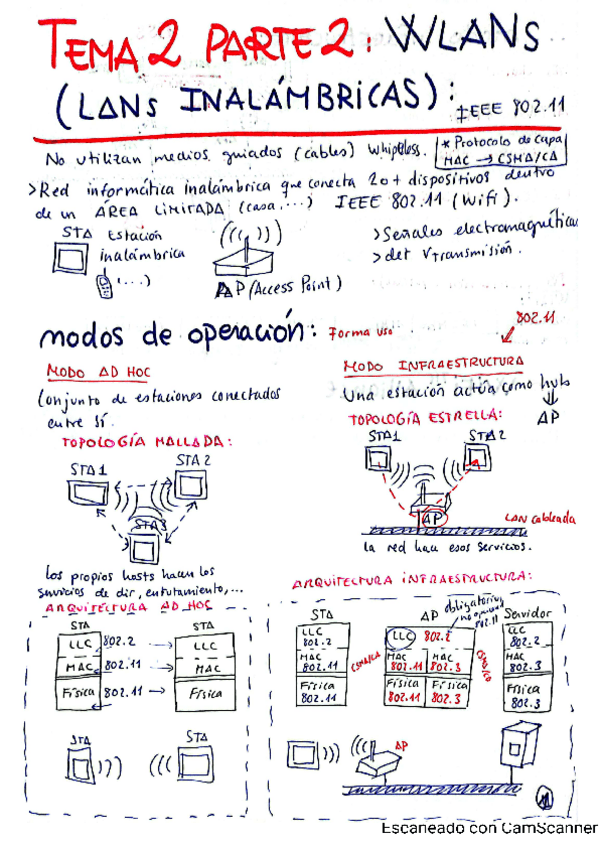 TEMA 2 PARTE 2: WLANs
(LANs INALÁMBRICAS):
IEEE 802.11
No utilizan medios guiados (cables)
* Protocolo de Capa
MAC → CSMA/CA
>Red informática inalámbrica que conecta 2 o + dispositivos dentro
de un ÁREA LIMITADA (casa, ...) IEEE 802.11 (Wifi).
STA Estación
inalámbrica
(...)
AP (Access Point)
>Señales electromagnéticas
>det Vtransmisión.
modos de operación: Forma uso
802.11
MODO AD HOC
Conjunto de estaciones conectados
entre sí.
TOPOLOGÍA MALLADA:
STA1
STA 2
STA3
los propios hosts hacen los
servicios de dir, enrutamiento,...
ARQUITECTURA AD HOC
STA STA
LLC 802.2 LLC
MAC 802.11 MAC
Física 802.11 Física
STA STA
MODO INFRAESTRUCTURA
Una estación actúa como hub
AP
TOPOLOGÍA ESTRELLA:
STA1 STA2
AP
LAN cableada
la red hace esos servicios.
ARQUITECTURA INFRAESTRUCTURA:
STA AP Servidor
obligatorio,
802.11
LLC 802.2
LLC 802.2
LLC 802.2
MAC 802.11
CSMA/CA
MAC 802.11
MAC 802.3
CSMA/CD
MAC 802.3
Física 802.11
Física 802.11
Física 802.3
Física 802.3
AP
1
Escaneado con CamScanner